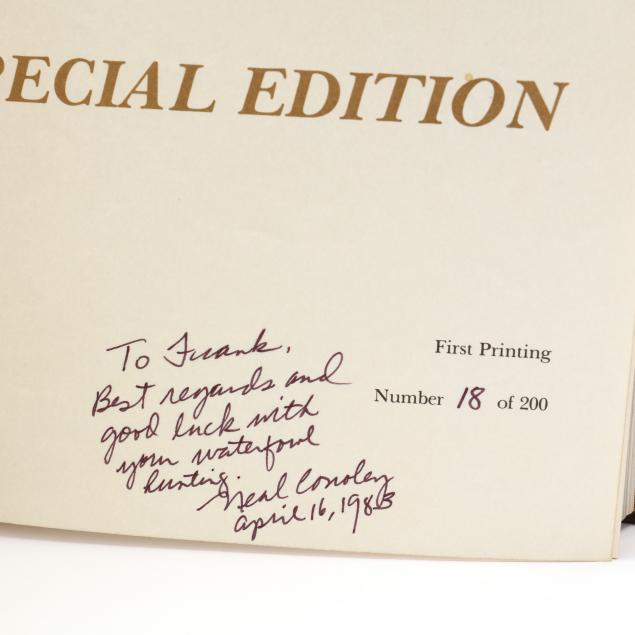 PECIAL EDITION
To Frank,
Best regards and
good luck with
your waterfowl
hunting.
Neal Conoley
April 16, 1983
First Printing
Number 18 of 200